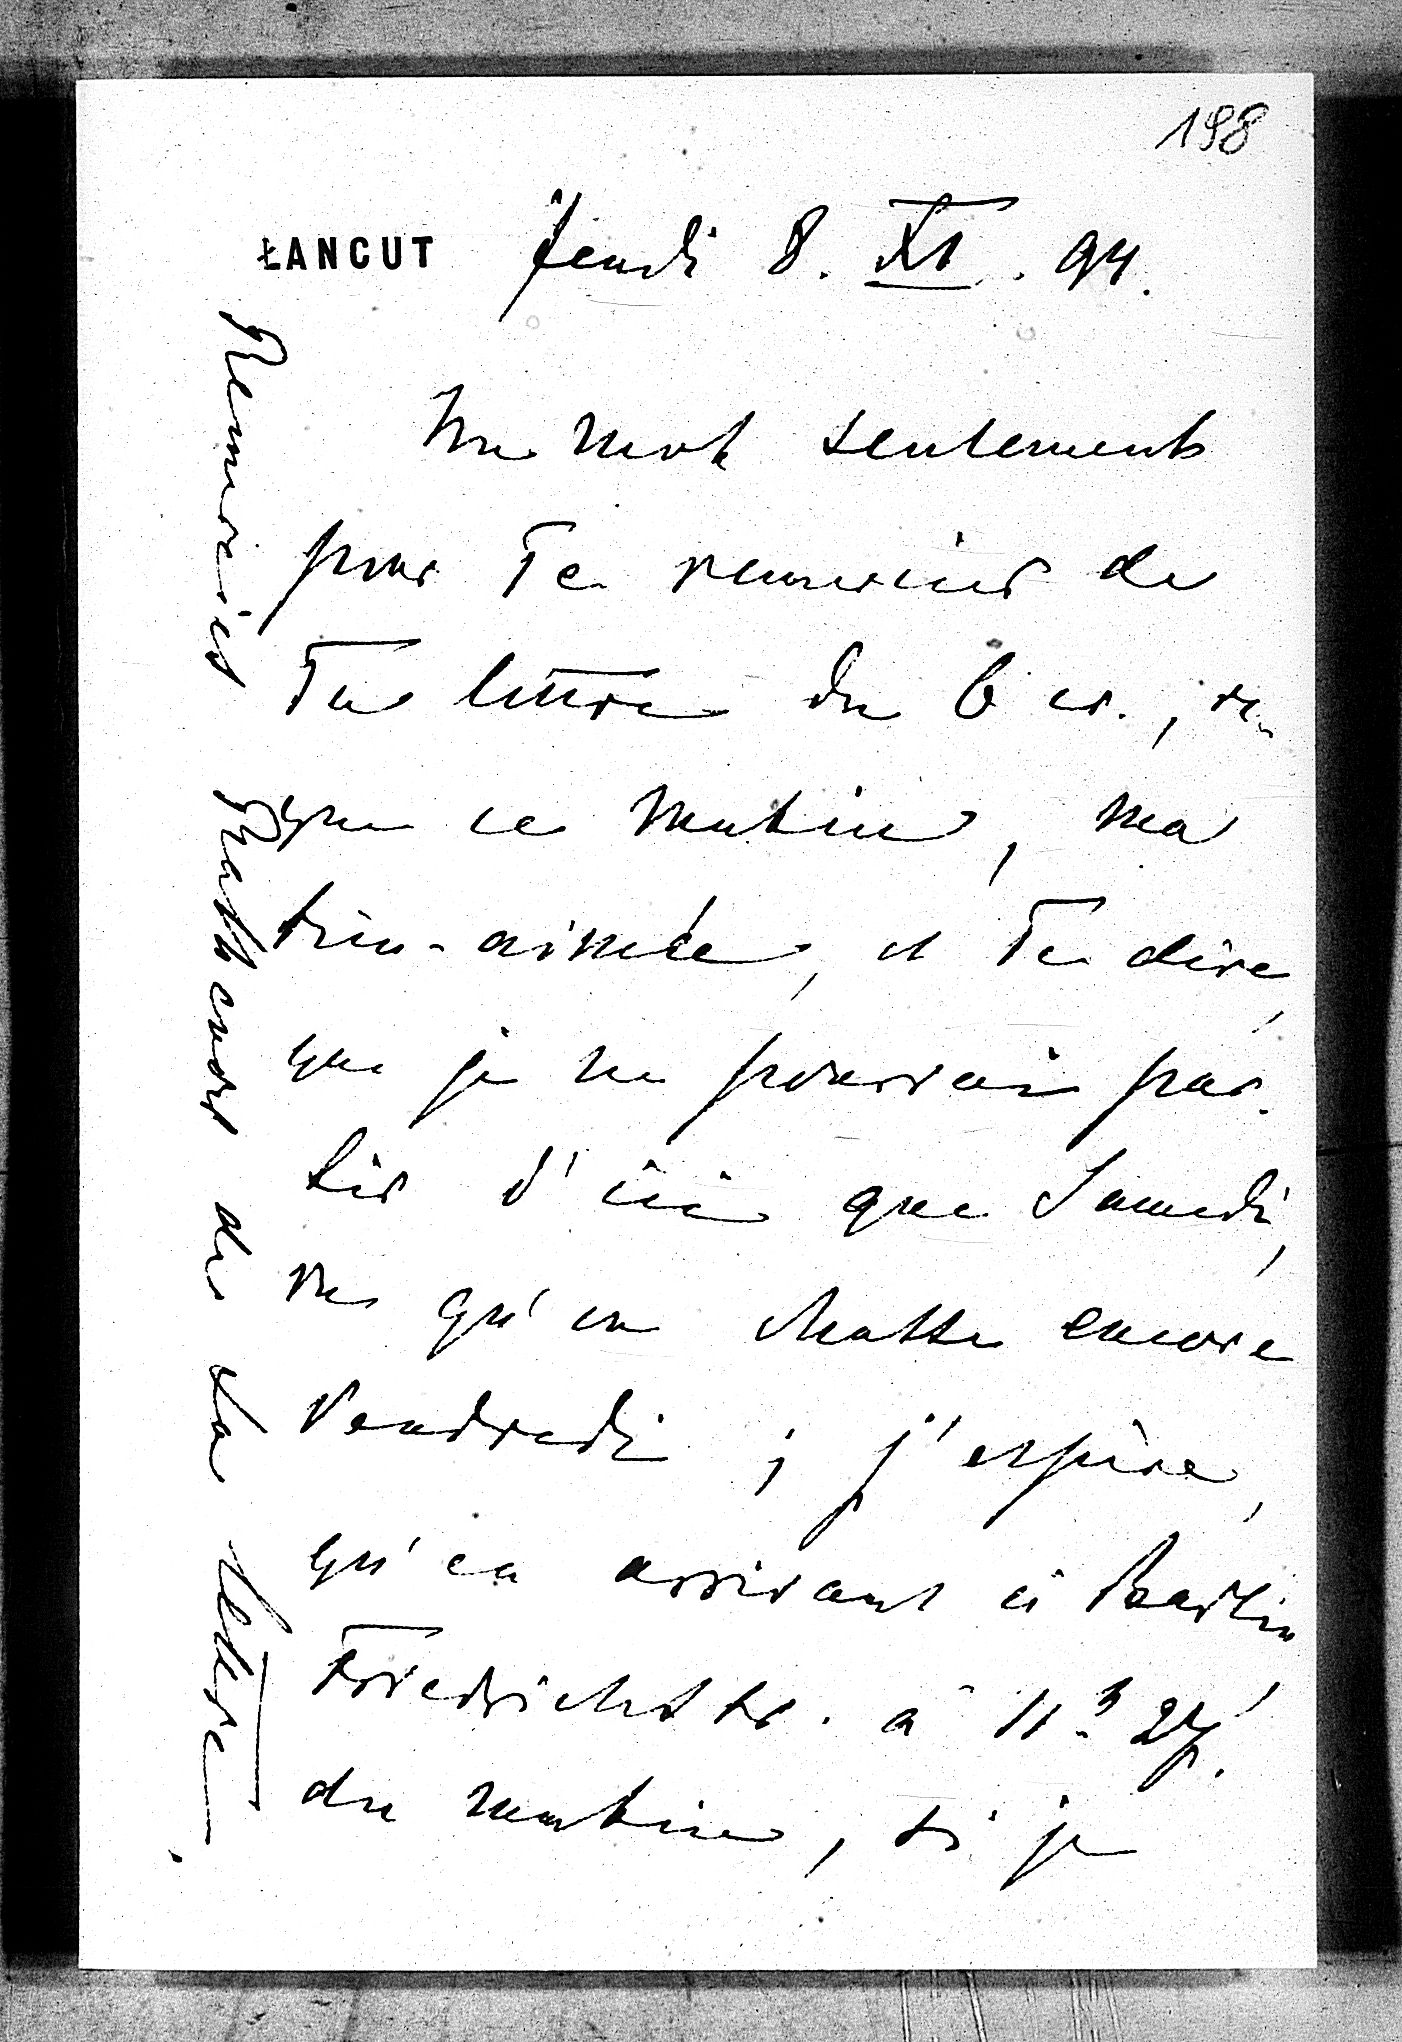 198
ŁANCUT Jeudi 8. XI. 94.
Un mot seulement
pour Te remercier de
Ta lettre du 6 cr., re-
çue ce matin, ma
bien-aimée, et Te dire,
que je ne pourrai par-
tir d'ici que Samedi,
vu qu'on chasse encore
Vendredi; j'espère,
qu'en arrivant à Berlin
Friedrichstr. à 11 h 27'.
du matin, si je
Remerciez de sa lettre.